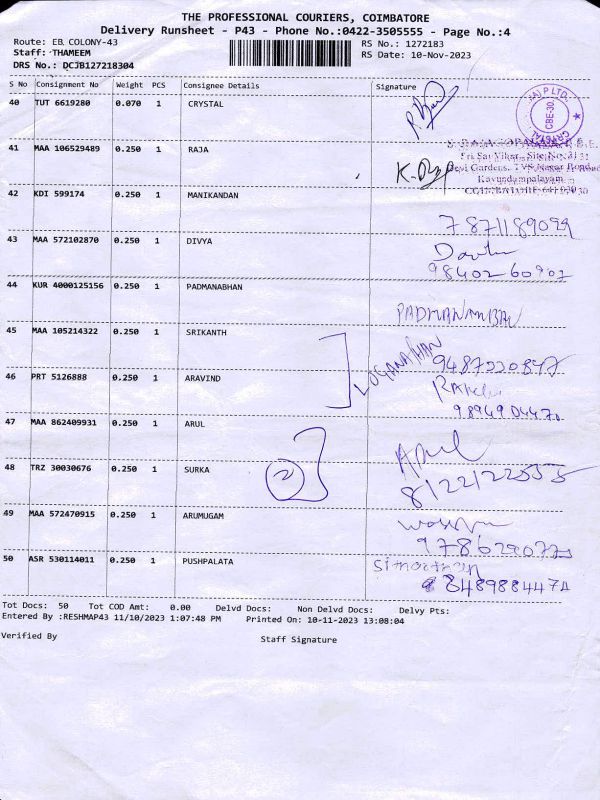 THE PROFESSIONAL COURIERS, COIMBATORE
Delivery Runsheet - P43 - Phone No.:0422-3505555 - Page No.:4
Route: EB COLONY-43 RS No.: 1272183
Staff: THAMEEM RS Date: 10-Nov-2023
DRS No.: DCJB127218304
S No Consignment No Weight PCS Consignee Details Signature
40 TUT 6619280 0.070 1 CRYSTAL
CRYSTAL CBE-30. P LTD.
41 MAA 106529489 0.250 1 RAJA
Fri Sai Vihar, Site No. 31
Devi Gardens, TVS Nagar Road
Kavundampalayam
COIMBATORE-641 030
42 KDI 599174 0.250 1 MANIKANDAN
7871189099
43 MAA 572102870 0.250 1 DIVYA
98402 60902
44 KUR 4000125156 0.250 1 PADMANABHAN
45 MAA 105214322 0.250 1 SRIKANTH
LOGANATHAN
9487220847
46 PRT 5126888 0.250 1 ARAVIND
9894904470
47 MAA 862409931 0.250 1 ARUL
Arul
48 TRZ 30030676 0.250 1 SURKA
2
8122122555
49 MAA 572470915 0.250 1 ARUMUGAM
50 ASR 530114011 0.250 1 PUSHPALATA
8489884474
Tot Docs: 50 Tot COD Amt: 0.00 Delvd Docs: Non Delvd Docs: Delvy Pts:
Entered By :RESHMAP43 11/10/2023 1:07:48 PM Printed On: 10-11-2023 13:08:04
Verified By Staff Signature